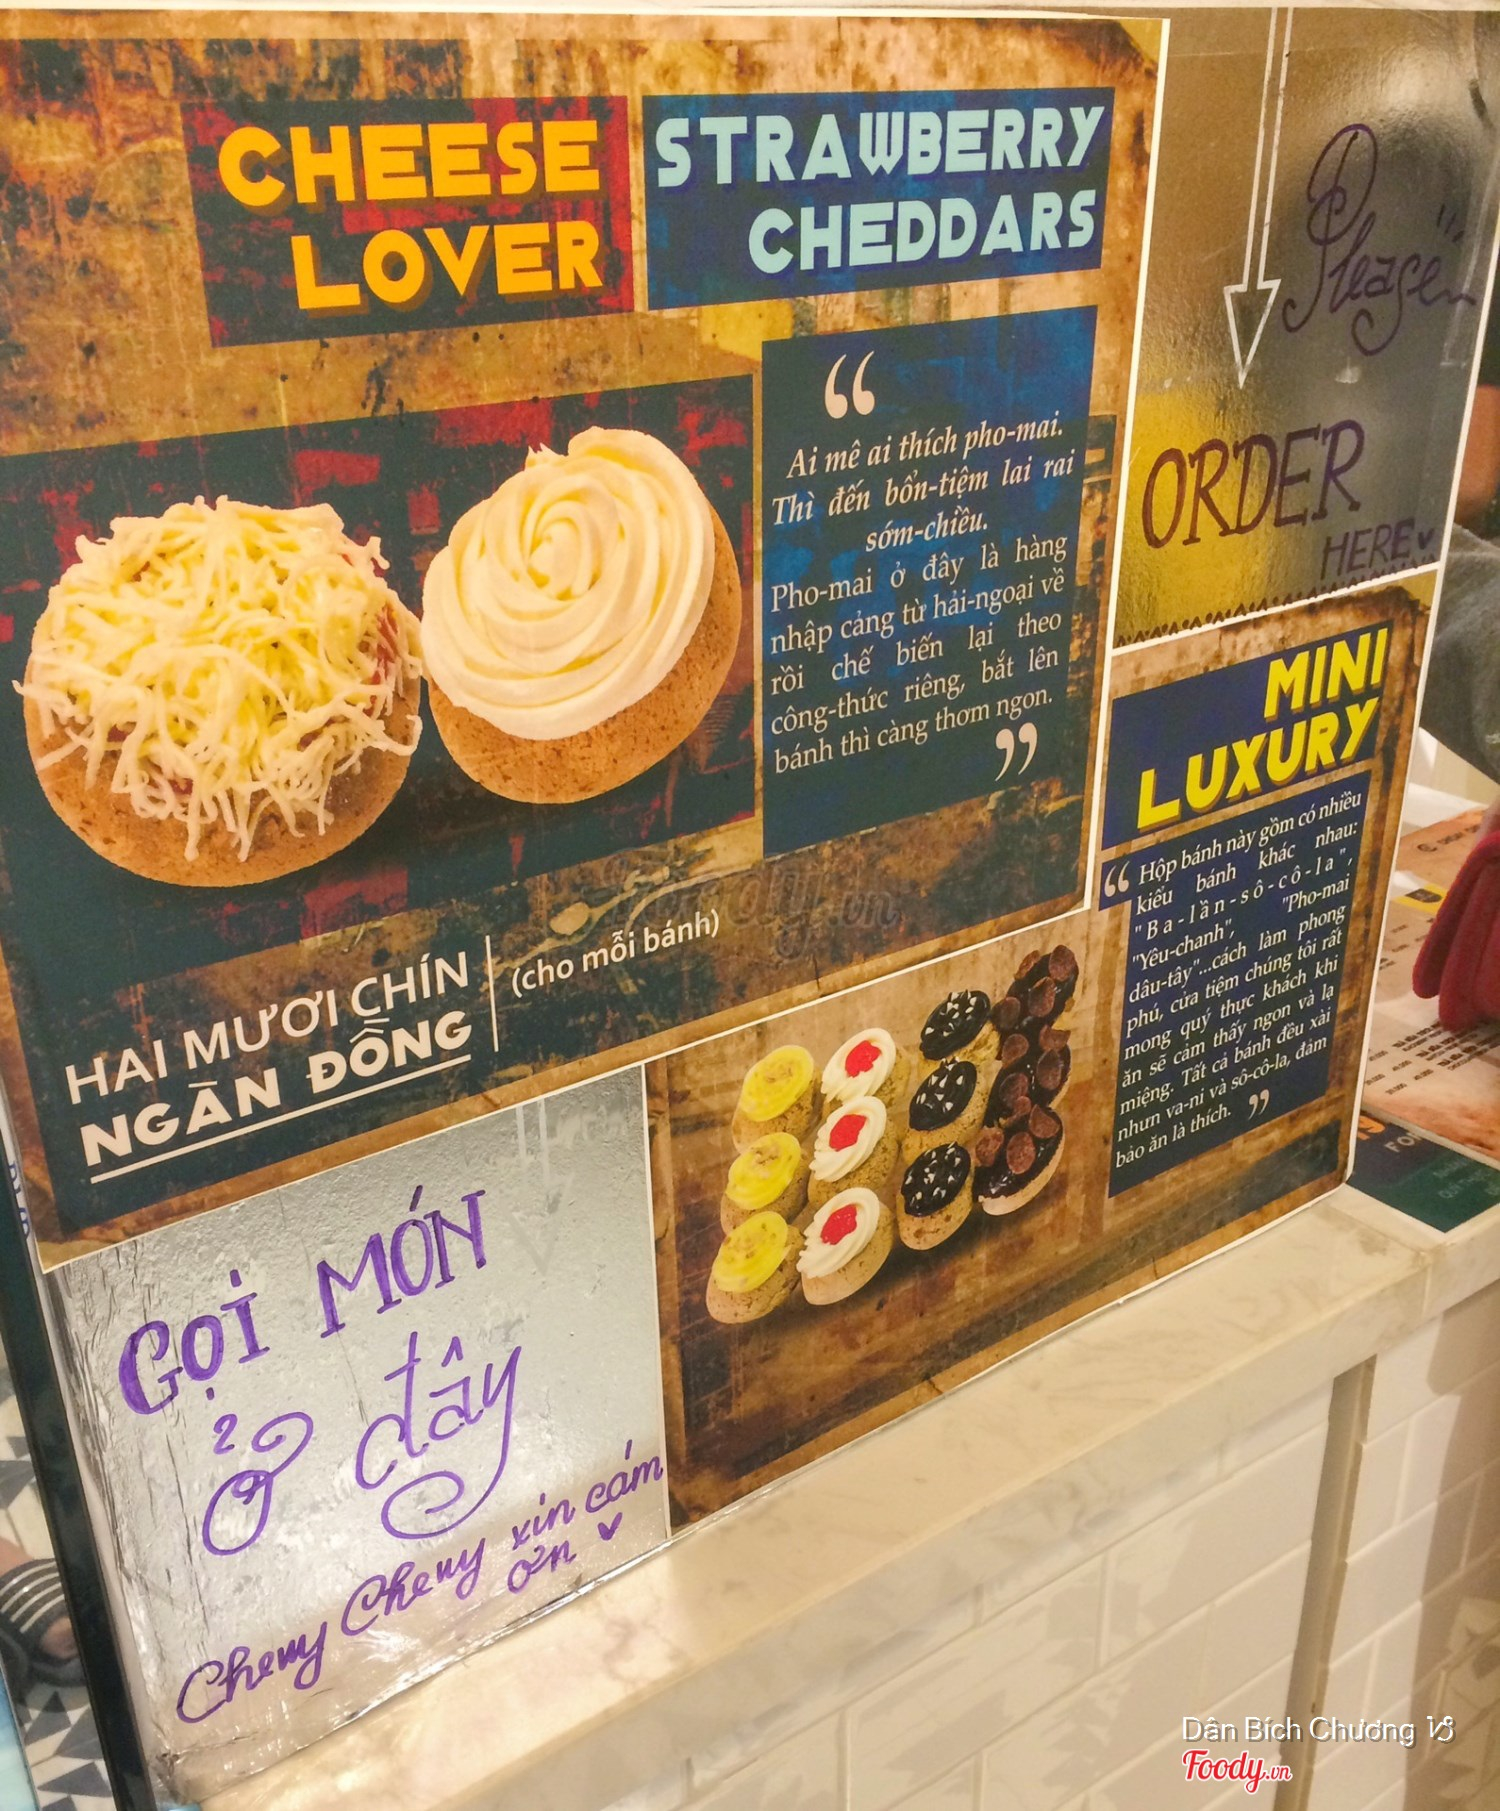 CHEESE
LOVER
STRAWBERRY
CHEDDARS
“
Ai mê ai thích pho-mai.
Thì đến bổn-tiệm lai rai
sớm-chiều.
Pho-mai ở đây là hàng
nhập cảng từ hải-ngoại về
rồi chế biến lại theo
công-thức riêng, bắt lên
bánh thì càng thơm ngon.
”
HAI MƯƠI CHÍN
NGÀN ĐỒNG
(cho mỗi bánh)
Please
ORDER
HERE
MINI
LUXURY
“ Hộp bánh này gồm có nhiều
kiểu bánh khác nhau:
"Ba-lần-sô-cô-la",
"Yêu-chanh", "Pho-mai
dâu-tây"...cách làm phong
phú, cửa tiệm chúng tôi rất
mong quý thực khách khi
ăn sẽ cảm thấy ngon và lạ
miệng. Tất cả bánh đều xài
nhưn va-ni và sô-cô-la, đảm
bảo ăn là thích. ”
GỌI MÓN
ở đây
Chewy Chewy xin cám
ơn
Dân Bích Chương
Foody.vn